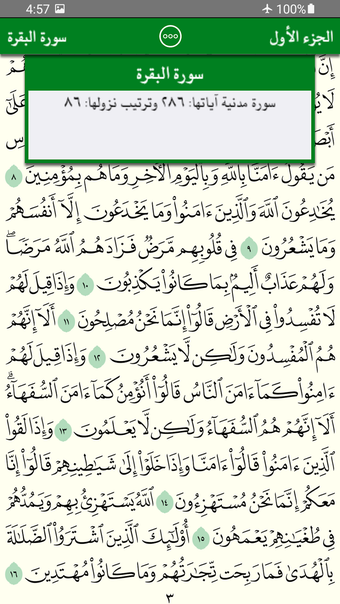 4:57 100%
الجزء الأول سورة البقرة
سورة البقرة
سورة مدنية آياتها: ٢٨٦ وترتيب نزولها: ٨٦
مَن يَقُولُ ءَامَنَّا بِٱللَّهِ وَبِٱلْيَوْمِ ٱلْءَاخِرِ وَمَا هُم بِمُؤْمِنِينَ ٨
يُخَٰدِعُونَ ٱللَّهَ وَٱلَّذِينَ ءَامَنُوا۟ وَمَا يَخْدَعُونَ إِلَّآ أَنفُسَهُمْ
وَمَا يَشْعُرُونَ ٩ فِى قُلُوبِهِم مَّرَضٌ فَزَادَهُمُ ٱللَّهُ مَرَضًا ۖ
وَلَهُمْ عَذَابٌ أَلِيمٌۢ بِمَا كَانُوا۟ يَكْذِبُونَ ١٠ وَإِذَا قِيلَ لَهُمْ
لَا تُفْسِدُوا۟ فِى ٱلْأَرْضِ قَالُوٓا۟ إِنَّمَا نَحْنُ مُصْلِحُونَ ١١ أَلَآ إِنَّهُمْ
هُمُ ٱلْمُفْسِدُونَ وَلَٰكِن لَّا يَشْعُرُونَ ١٢ وَإِذَا قِيلَ لَهُمْ
ءَامِنُوا۟ كَمَآ ءَامَنَ ٱلنَّاسُ قَالُوٓا۟ أَنُؤْمِنُ كَمَآ ءَامَنَ ٱلسُّفَهَآءُ ۗ
أَلَآ إِنَّهُمْ هُمُ ٱلسُّفَهَآءُ وَلَٰكِن لَّا يَعْلَمُونَ ١٣ وَإِذَا لَقُوا۟
ٱلَّذِينَ ءَامَنُوا۟ قَالُوٓا۟ ءَامَنَّا وَإِذَا خَلَوْا۟ إِلَىٰ شَيَٰطِينِهِمْ قَالُوٓا۟ إِنَّا
مَعَكُمْ إِنَّمَا نَحْنُ مُسْتَهْزِءُونَ ١٤ ٱللَّهُ يَسْتَهْزِئُ بِهِمْ وَيَمُدُّهُمْ
فِى طُغْيَٰنِهِمْ يَعْمَهُونَ ١٥ أُو۟لَٰٓئِكَ ٱلَّذِينَ ٱشْتَرَوُا۟ ٱلضَّلَٰلَةَ
بِٱلْهُدَىٰ فَمَا رَبِحَت تِّجَٰرَتُهُمْ وَمَا كَانُوا۟ مُهْتَدِينَ ١٦
٣